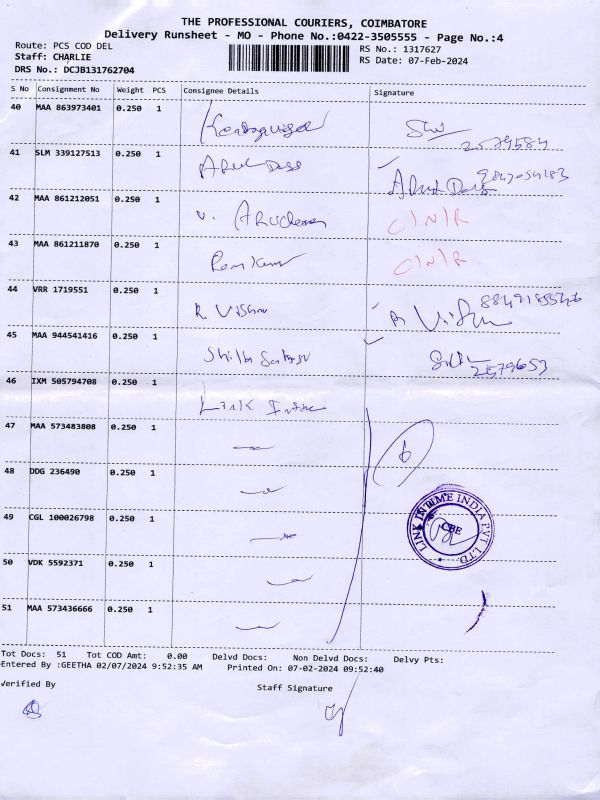 THE PROFESSIONAL COURIERS, COIMBATORE
Delivery Runsheet - MO - Phone No.:0422-3505555 - Page No.:4
Route: PCS COD DEL
RS No.: 1317627
Staff: CHARLIE
RS Date: 07-Feb-2024
DRS No.: DCJB131762704
S No Consignment No Weight PCS Consignee Details Signature
40 MAA 863973401 0.250 1
2579584
41 SLM 339127513 0.250 1 Arul Doss Arul Doss
42 MAA 861212051 0.250 1 V. C/N/R
43 MAA 861211870 0.250 1 Ramkumar C/N/R
44 VRR 1719551 0.250 1 R. Vishnu
45 MAA 944541416 0.250 1 2579653
46 IXM 505794708 0.250 1 Link Intime
47 MAA 573483808 0.250 1 6
48 DDG 236490 0.250 1
49 CGL 100026798 0.250 1
LINK INTIME INDIA PVT LTD
CBE
50 VDK 5592371 0.250 1
51 MAA 573436666 0.250 1
Tot Docs: 51 Tot COD Amt: 0.00 Delvd Docs: Non Delvd Docs: Delvy Pts:
Entered By :GEETHA 02/07/2024 9:52:35 AM Printed On: 07-02-2024 09:52:40
Verified By
Staff Signature